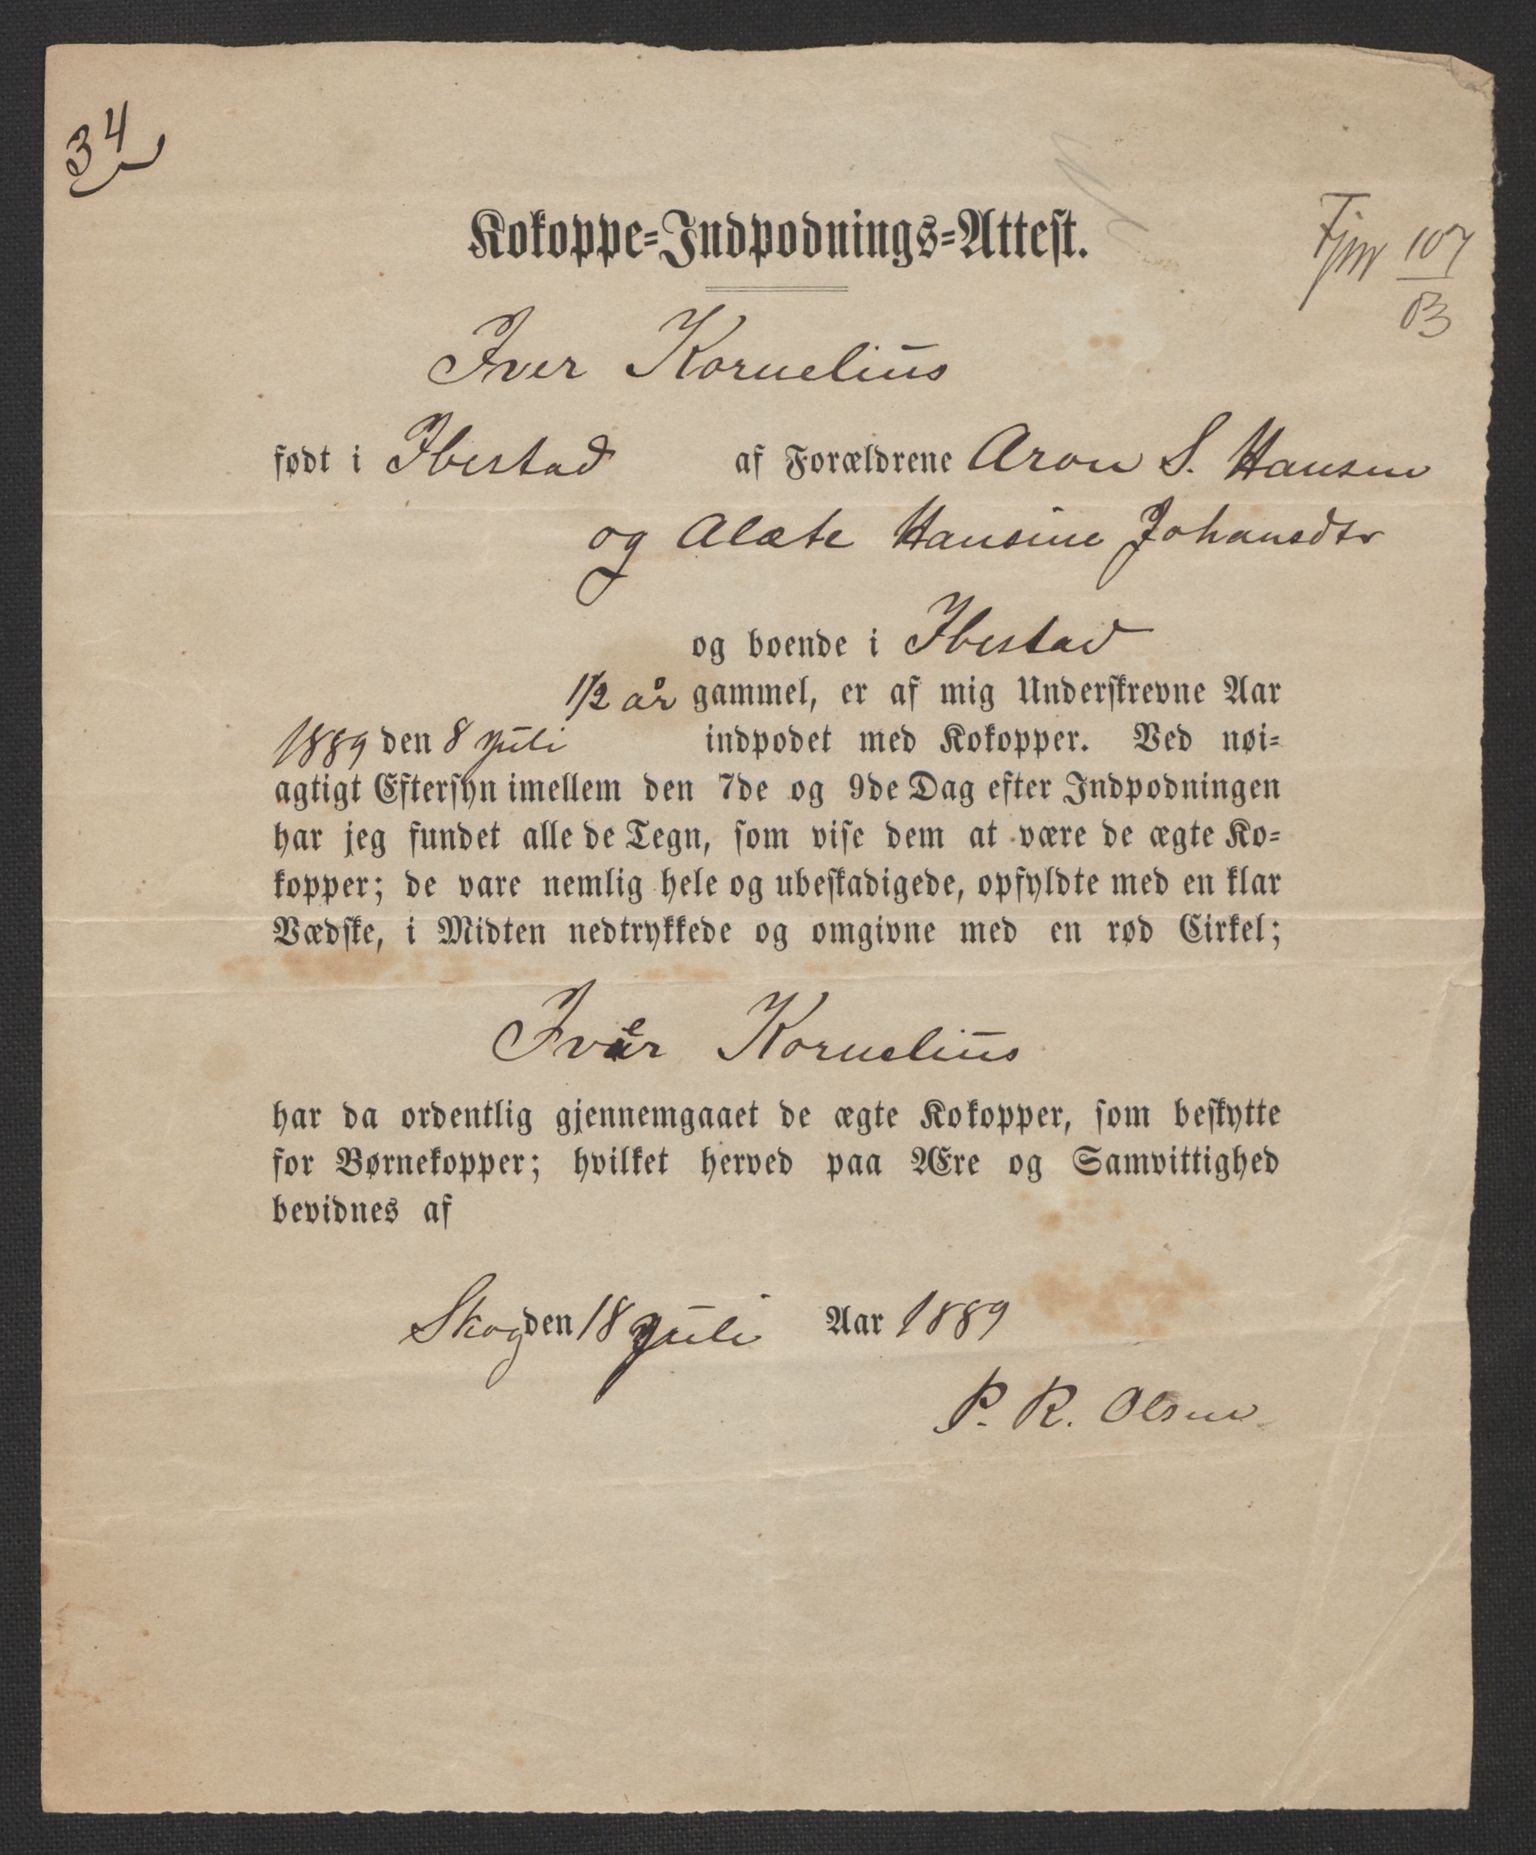 34
Kokoppe-Indpodnings-Attest.
Fjnr 107
03
Iver Kornelius
født i Ibestad af Forældrene Aron S. Hansen
og Alæte Hansine Johansdtr
og boende i Ibestad
1/2 år gammel, er af mig Underskrevne Aar
1889 den 8 Juli indpodet med Kokopper. Ved nøi-
agtigt Eftersyn imellem den 7de og 9de Dag efter Indpodningen
har jeg fundet alle de Tegn, som vise dem at være de ægte Ko-
kopper; de vare nemlig hele og ubeskadigede, opfyldte med en klar
Vædske, i Midten nedtrykkede og omgivne med en rød Cirkel;
Iver Kornelius
har da ordentlig gjennemgaaet de ægte Kokopper, som beskytte
for Børnekopper; hvilket herved paa Ære og Samvittighed
bevidnes af
Skog den 18 Juli Aar 1889
P. R. Olsen